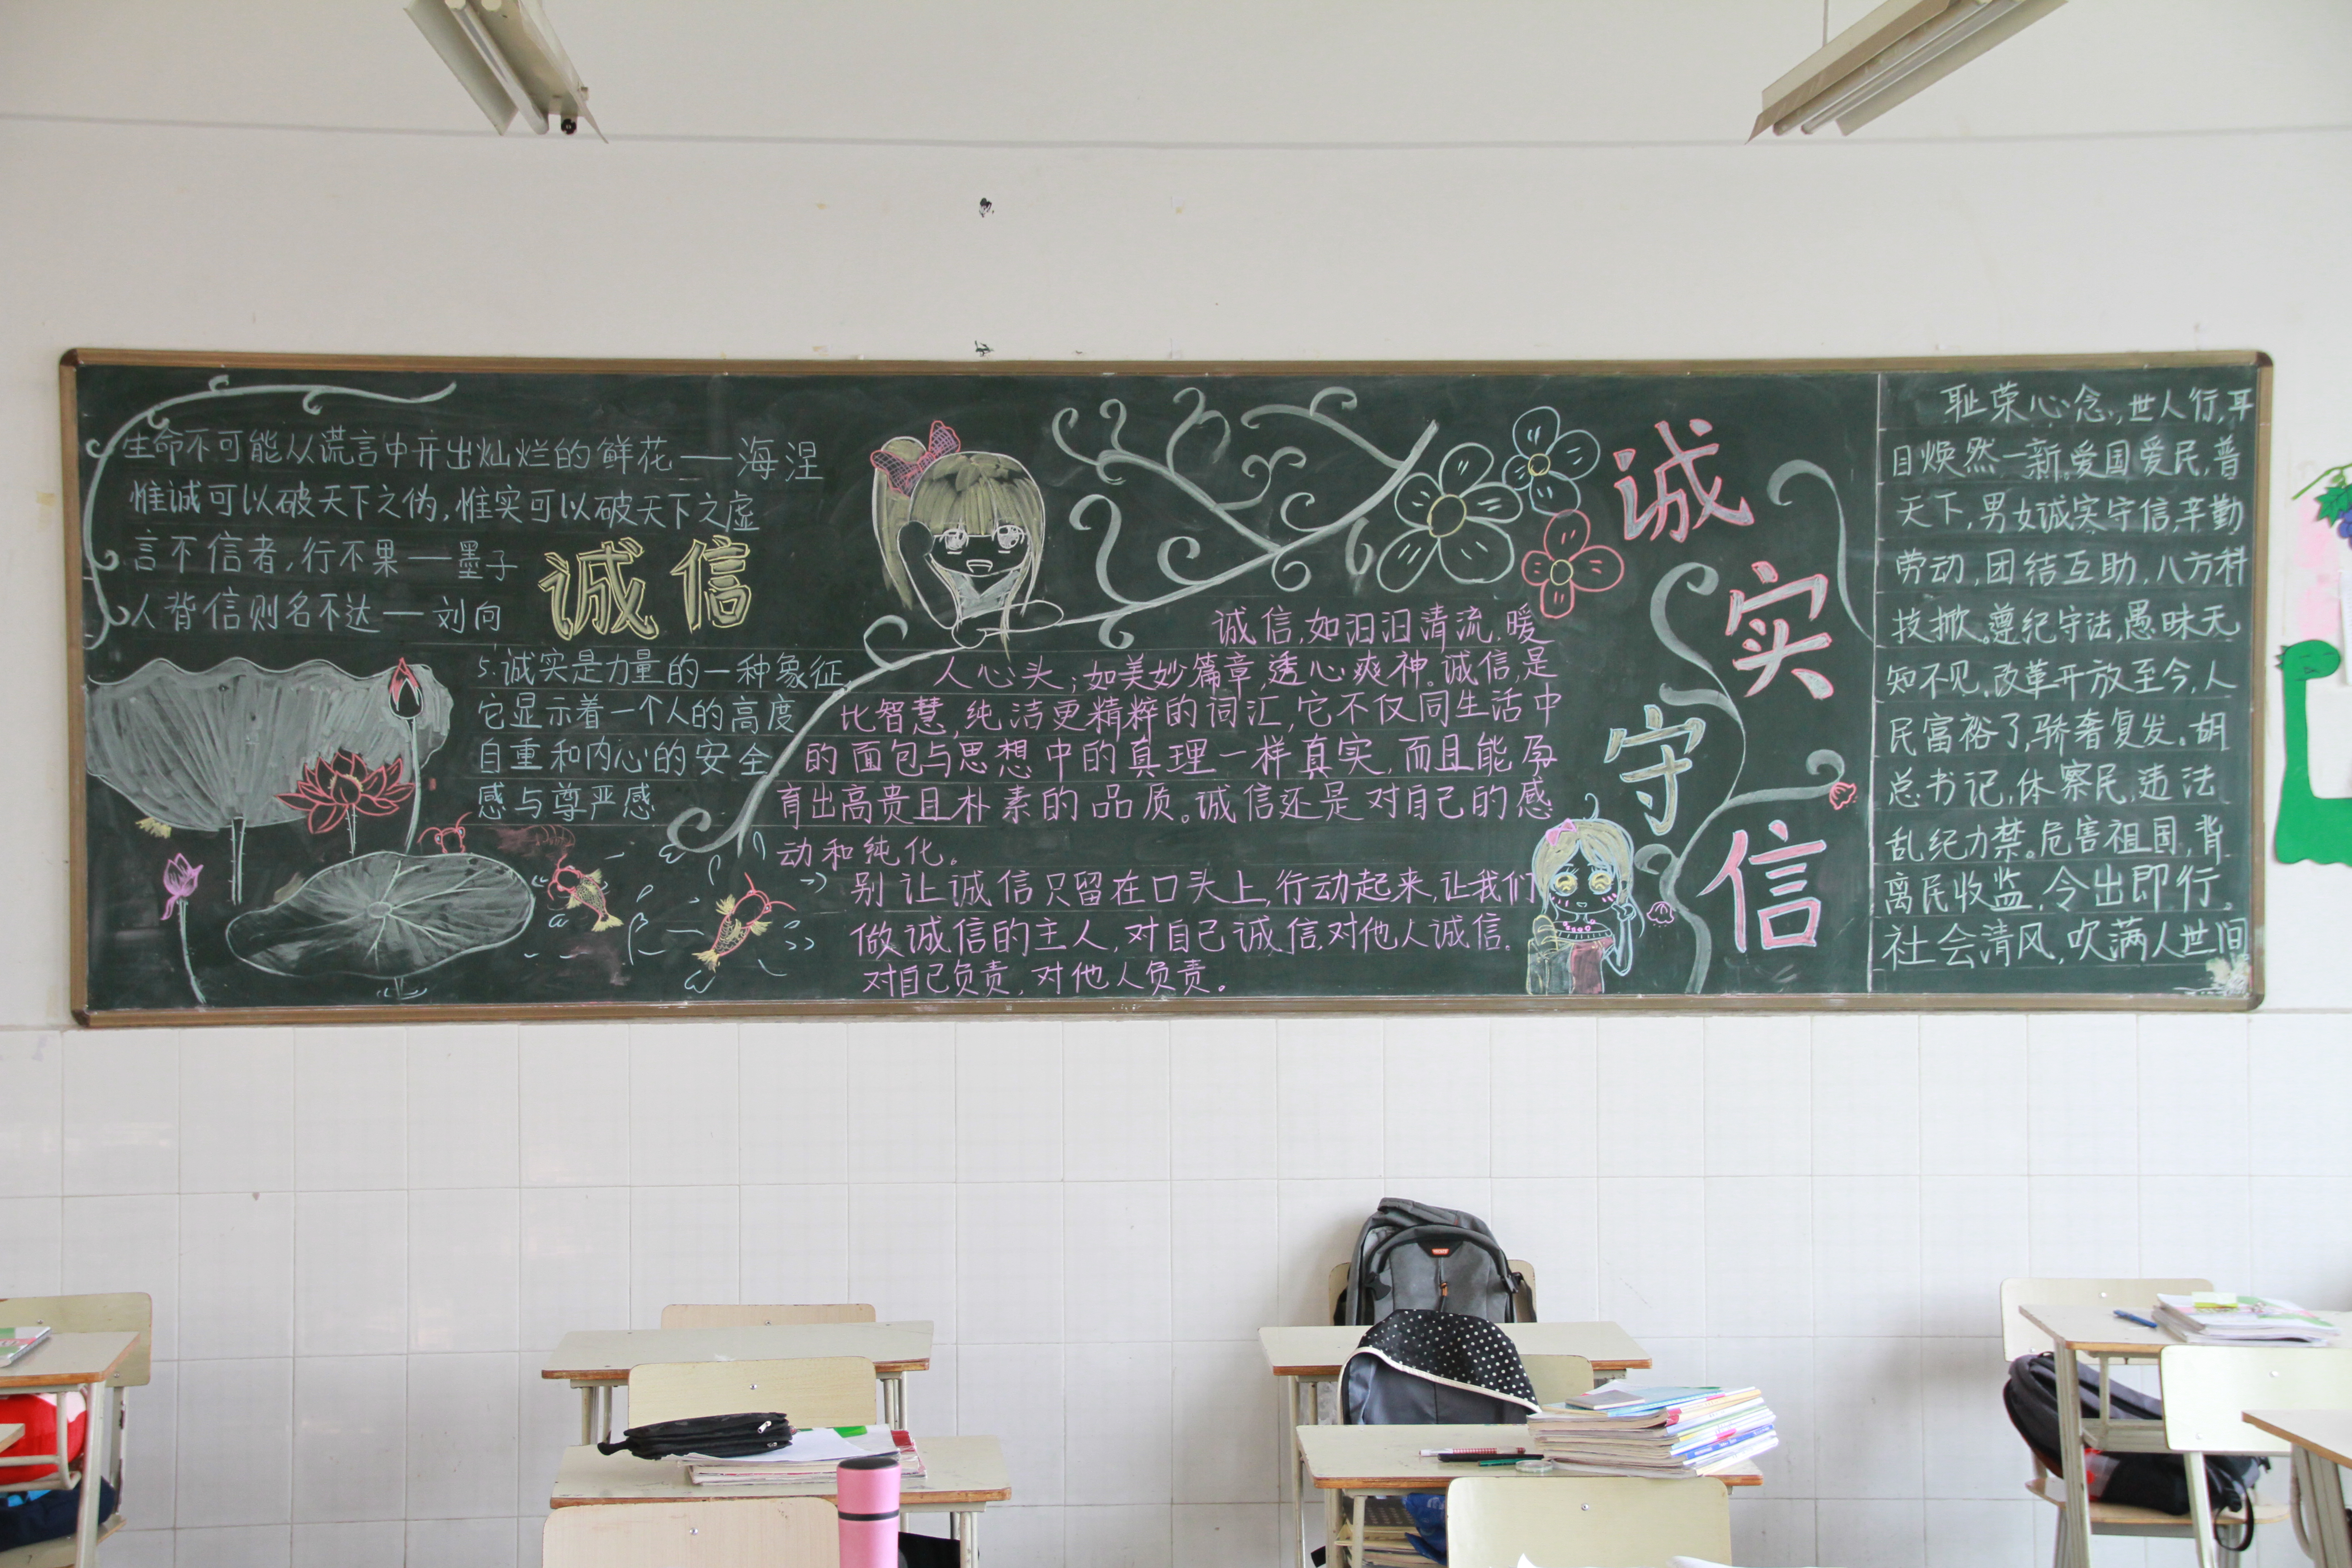 生命不可能从谎言中开出灿烂的鲜花——海涅
惟诚可以破天下之伪,惟实可以破天下之虚
言不信者,行不果——墨子
人背信则名不达——刘向
诚信
5.诚实是力量的一种象征,
它显示着一个人的高度
自重和内心的安全
感与尊严感
诚信,如汩汩清流,暖
人心头;如美妙篇章,透心爽神。诚信,是
比智慧,纯洁更精粹的词汇,它不仅同生活中
的面包与思想中的真理一样真实,而且能孕
育出高贵且朴素的品质。诚信还是对自己的感
动和纯化。
别让诚信只留在口头上,行动起来,让我们
做诚信的主人,对自己诚信,对他人诚信。
对自己负责,对他人负责。
诚
实
守
信
耻荣心念,世人行,耳
目焕然一新。爱国爱民,普
天下,男女诚实守信,辛勤
劳动,团结互助,八方科
技掀。遵纪守法,愚昧无
知不见,改革开放至今,人
民富裕了,骄奢复发。胡
总书记,体察民,违法
乱纪力禁。危害祖国,背
离民收监,令出即行。
社会清风,吹满人世间